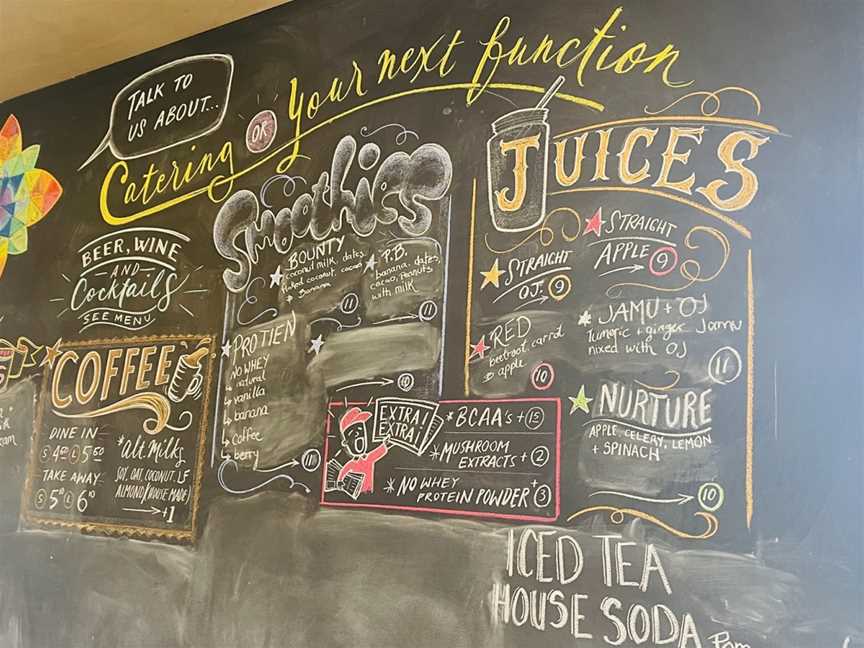 TALK TO
US ABOUT...
Catering OR Your next function
BEER, WINE
AND
Cocktails
SEE MENU
COFFEE
DINE IN
TAKE AWAY
*Alt. Milks
SOY, OAT, COCONUT, LF
ALMOND (HOUSE MADE)
+1
Smoothies
BOUNTY
coconut milk, dates
flaked coconut, cacao
Banana
11
P.B.
banana, dates,
cacao, peanuts
with milk
11
PROTIEN
NO WHEY
natural
vanilla
banana
coffee
berry
EXTRA!
EXTRA!
*BCAA's + 1.5
*MUSHROOM
EXTRACTS + 2
*NO WHEY
PROTEIN POWDER + 3
JUICES
STRAIGHT
OJ. 9
STRAIGHT
APPLE 9
RED
beetroot, carrot
apple
10
JAMU + OJ
Tumeric + ginger Jamu
mixed with OJ
11
NURTURE
APPLE, CELERY, LEMON
+ SPINACH
10
ICED TEA
HOUSE SODA